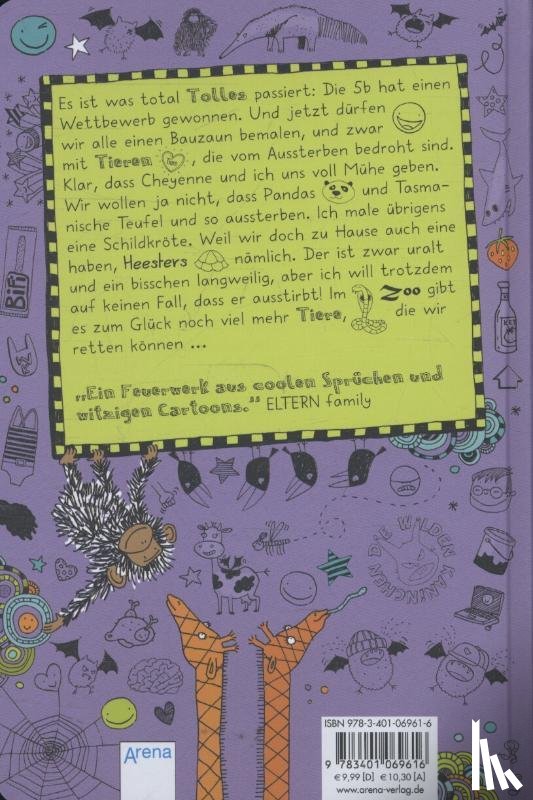 Es ist was total Tolles passiert: Die 5b hat einen
Wettbewerb gewonnen. Und jetzt dürfen
wir alle einen Bauzaun bemalen, und zwar
mit Tieren , die vom Aussterben bedroht sind.
Klar, dass Cheyenne und ich uns voll Mühe geben.
Wir wollen ja nicht, dass Pandas und Tasma-
nische Teufel und so aussterben. Ich male übrigens
eine Schildkröte. Weil wir doch zu Hause auch eine
haben, Heesters nämlich. Der ist zwar uralt
und ein bisschen langweilig, aber ich will trotzdem
auf keinen Fall, dass er ausstirbt! Im Zoo gibt
es zum Glück noch viel mehr Tiere, die wir
retten können ...
„Ein Feuerwerk aus coolen Sprüchen und
witzigen Cartoons.“ ELTERN family
BiFi
DIE WILDEN
KANINCHEN
Arena
ISBN 978-3-401-06961-6
9 783401 069616
€ 9,99 [D] € 10,30 [A]
www.arena-verlag.de